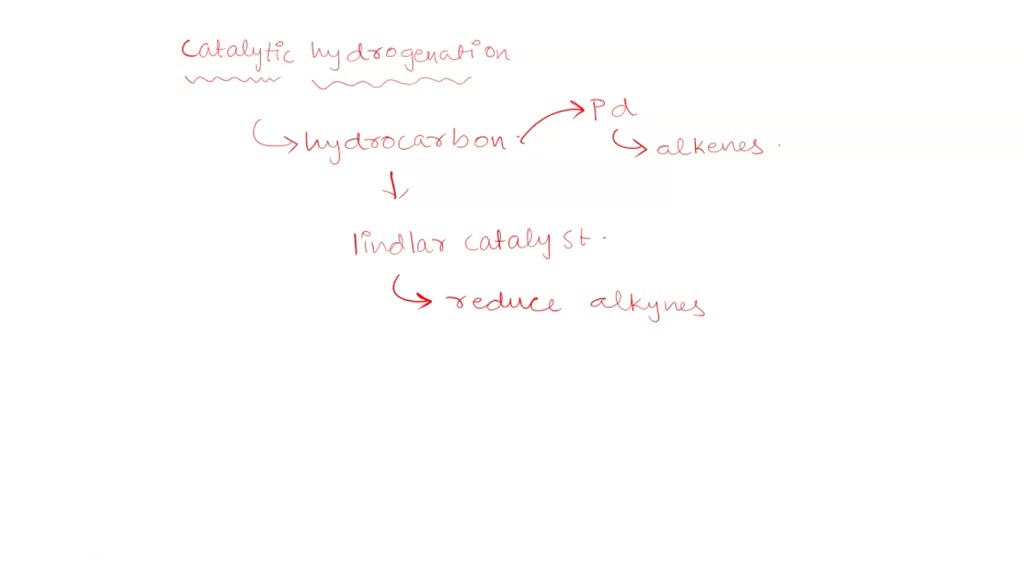 catalytic hydrogenation
hydrocarbon
Pd
alkenes
lindlar catalyst.
reduce alkynes